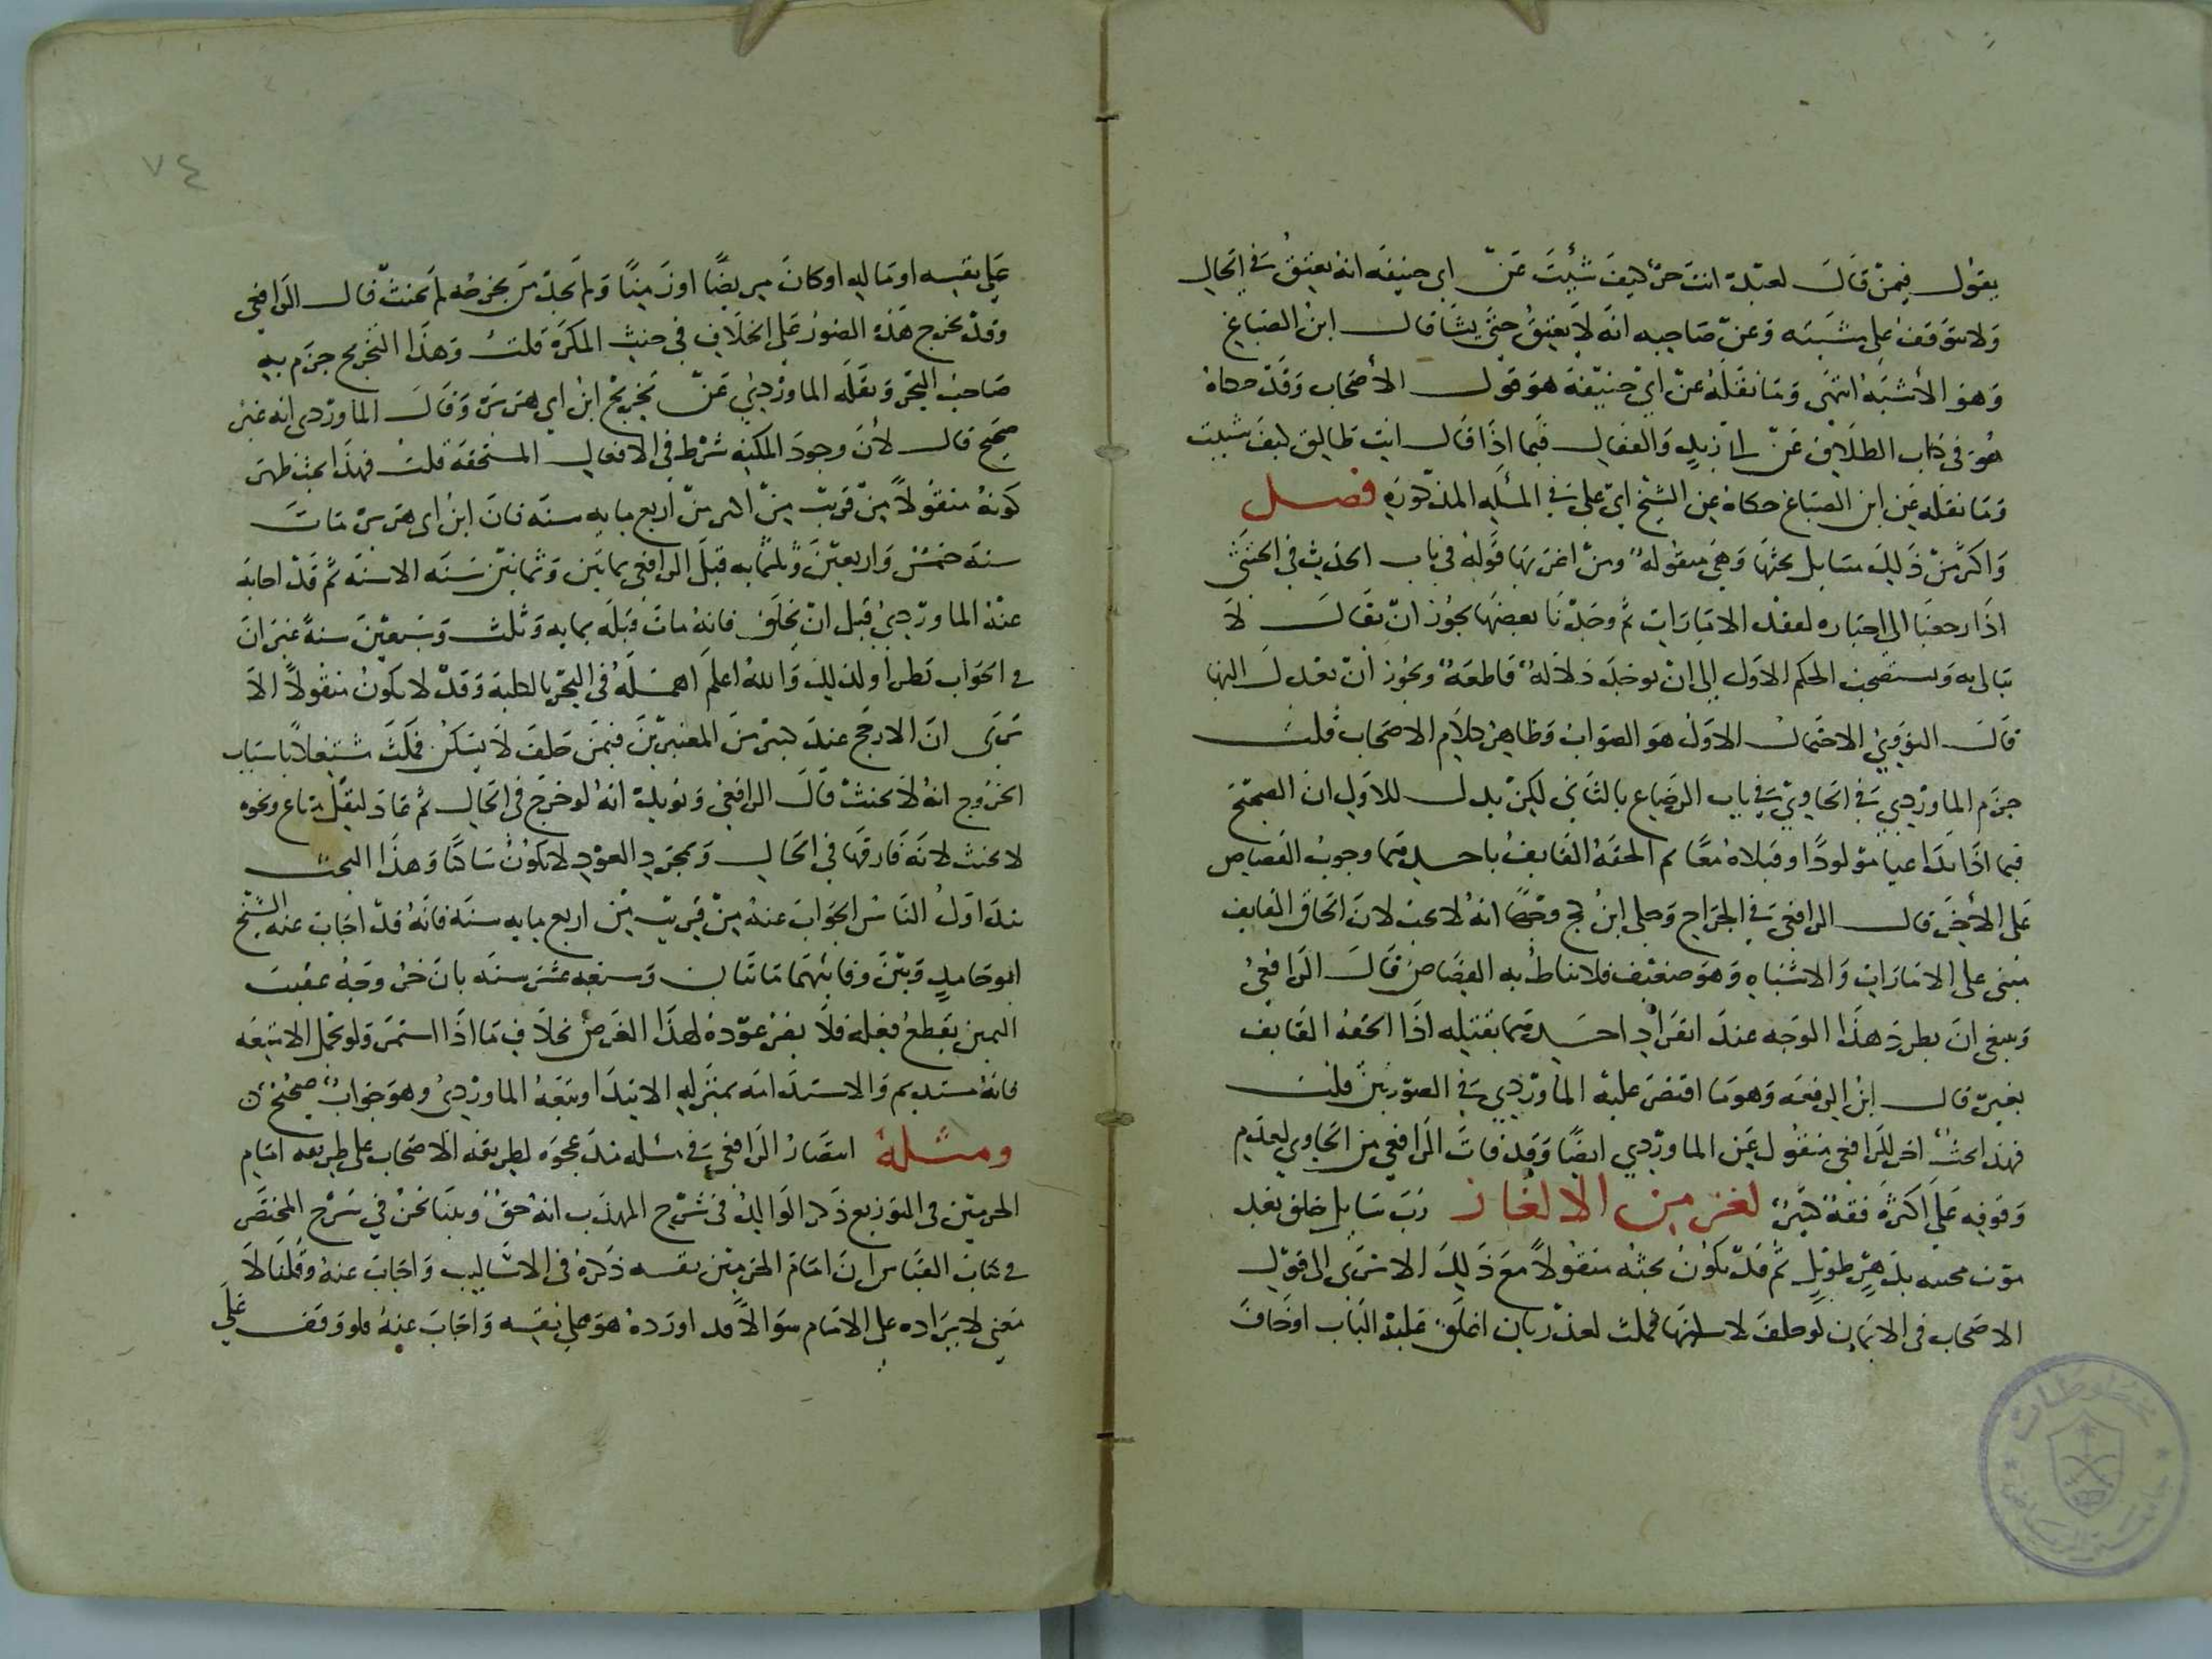 يقول فيمن قال لعبده انت حر كيف شئت عن ابي حنيفه انه يعتق في الحال
ولا يتوقف على مشيته وعن صاحبيه انه لا يعتق حتى يشا قال ابن الصباغ
وهو الأشبه انتهى وما نقله عن ابي حنيفة هو قول الأصحاب وقد حكاه
هو في كتاب الطلاق عن ابي زيد والقفال فيما اذا قال انت طالق كيف شيت
وما نقله عن ابن الصباغ حكاه عن الشيخ ابي علي في المسله المذكوره فصل
واكثر من ذلك مسايل بحثها وهي منقوله ومن اغربها قوله في باب الحديث في الخنثى
اذا رجعنا الى اختياره لفقد الامارات ثم وجدنا بعضها يجوز ان يقال لا
يبالى به ويستصحب الحكم الاول الى ان يوجد دلاله قاطعة ويجوز أن يعدل اليها
قال النووي الاحتمال الاول هو الصواب وظاهر كلام الاصحاب قلت
جزم الماوردي في الحاوي في باب الرضاع بالثاني لكن يدل للاول ان الصحيح
فيما اذا تداعيا مولودا وقتلاه معا ثم الحقه القايف باحدهما وجوب القصاص
على الأخر قال الرافعي في الجراح وحكى ابن كج وجها انه لا يجب لان الحاق القايف
مبني على الامارات والاشباه وهو ضعيف فلا يناط به القصاص قال الرافعي
وينبغي ان يطرد هذا الوجه عند انفراد احدهما بقتله اذا الحقه القايف
بغيره قال ابن الرفعه وهو ما اقتصر عليه الماوردي في الصورتين قلت
فهذا بحث اخر للرافعي منقول عن الماوردي ايضا وقد فات الرافعي من الحاوي لعدم
وقوفه على اكثره فقه كثير لغز من الالغاز رب مسايل خلق بعد
موت محييه بدهر طويل ثم قد يكون بحثه منقولا مع ذلك الا ترى الى قول
الاصحاب في الايمان لو حلف لا يسكنها فمكث لعذر بان اغلق عليه الباب او خاف
٧٤
على نفسه او ماله او كان مريضا او زمنا ولم يجد من يخرجه لم يحنث قال الرافعي
وقد يخرج هذه الصور على الخلاف في حنث المكره قلت وهذا التخريج جزم به
صاحب البحر ونقله الماوردي عن تخريج ابن ابي هريره وقال الماوردي انه غير
صحيح قال لأن وجود المكنه شرط في الافعال المستحقه قلت فهذا بحث ظهر
كونه منقولا من قريب من اكثر من اربع مايه سنه فان ابن ابي هريره مات
سنه خمس واربعين وثلثمايه قبل الرافعي بمايتين وثمانين سنه الا سنه ثم قد اجاب
عنه الماوردي قبل ان يخلق فانه مات قبله بمايه وثلث وسبعين سنة غير ان
في الجواب نظرا ولذلك والله اعلم اهمله في البحر بالكلية وقد لا يكون منقولا الا
ترى ان الارجح عند كثير من المعتبرين فيمن حلف لا يسكن فمكث مشتغلا باسباب
الخروج انه لا يحنث قال الرافعي ويؤيده انه لو خرج في الحال ثم عاد لينقل متاع ونحوه
لا يحنث لانه فارقها في الحال وبمجرد العود لا يكون ساكنا وهذا البحث
تداول الناس الجواب عنه من قريب من اربع مايه سنه فانه قد اجاب عنه الشيخ
ابو حامد وبين وفاتيهما مايتان وسبعه عشر سنه بان خروجه عقيب
اليمين يقطع فعله فلا يضر عوده لهذا الغرض بخلاف ما اذا استمر ولو لحمل الامتعه
فانه مستديم والاستدامه بمنزله الابتدا وتبعه الماوردي وهو جواب صحيح
ومسله انتصار الرافعي في مسله مد عجوه لطريقه الاصحاب على طريقه امام
الحرمين في التوزيع ذكر الوالد في شرح المهذب انه حق وبينا نحن في شرح المختصر
في كتاب القياس ان امام الحرمين نفسه ذكره في الاساليب واجاب عنه وقلنا لا
معنى لايراده على الامام سوالا قد اورده هو على نفسه واجاب عنه فلو وقف على